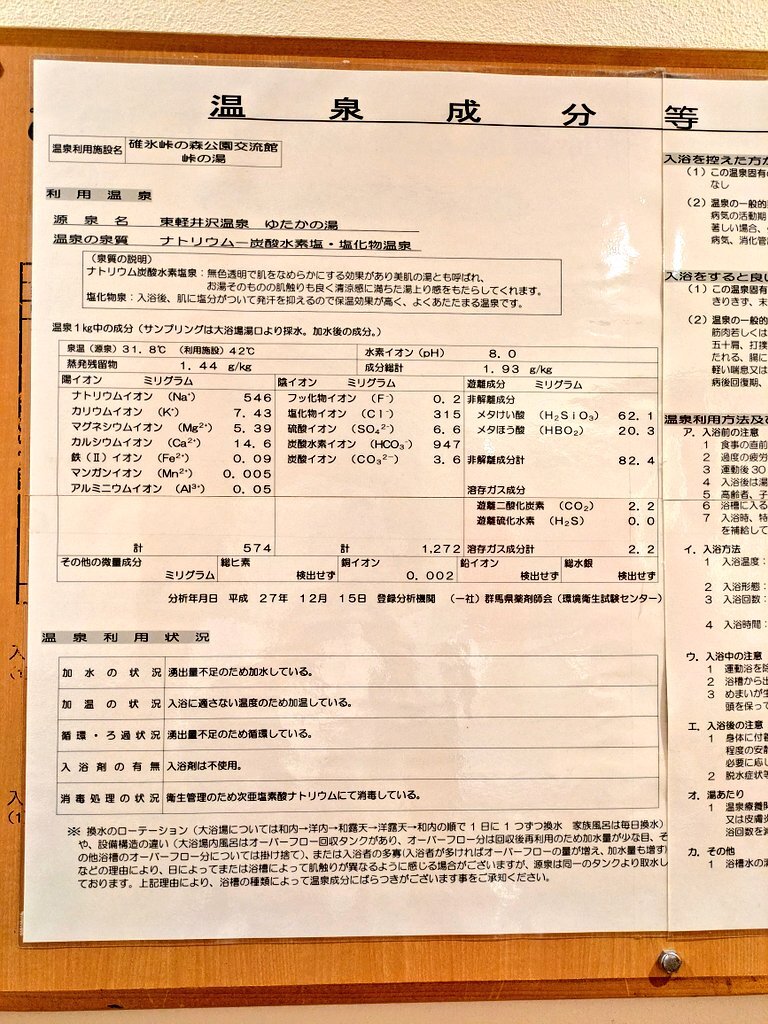 温泉成分等
温泉利用施設名 碓氷峠の森公園交流館
峠の湯
利用温泉
源泉名 東軽井沢温泉 ゆたかの湯
温泉の泉質 ナトリウムー炭酸水素塩・塩化物温泉
(泉質の説明)
ナトリウム炭酸水素塩泉：無色透明で肌をなめらかにする効果があり美肌の湯とも呼ばれ、
お湯そのものの肌触りも良く清涼感に満ちた湯上り感をもたらしてくれます。
塩化物泉：入浴後、肌に塩分がついて発汗を抑えるので保温効果が高く、よくあたたまる温泉です。
温泉1kg中の成分（サンプリングは大浴場湯口より採水。加水後の成分。）
泉温（源泉）31.8℃ （利用施設）42℃ 水素イオン（pH） 8.0
蒸発残留物 1.44 g/kg 成分総計 1.93 g/kg
陽イオン ミリグラム 陰イオン ミリグラム 遊離成分 ミリグラム
ナトリウムイオン (Na⁺) 546 フッ化物イオン (F⁻) 0.2 非解離成分
カリウムイオン (K⁺) 7.43 塩化物イオン (Cl⁻) 315 メタけい酸 (H₂SiO₃) 62.1
マグネシウムイオン (Mg²⁺) 5.39 硫酸イオン (SO₄²⁻) 6.6 メタほう酸 (HBO₂) 20.3
カルシウムイオン (Ca²⁺) 14.6 炭酸水素イオン (HCO₃⁻) 947
鉄(Ⅱ)イオン (Fe²⁺) 0.09 炭酸イオン (CO₃²⁻) 3.6 非解離成分計 82.4
マンガンイオン (Mn²⁺) 0.005
アルミニウムイオン (Al³⁺) 0.05 溶存ガス成分
遊離二酸化炭素 (CO₂) 2.2
遊離硫化水素 (H₂S) 0.0
計 574 計 1,272 溶存ガス成分計 2.2
その他の微量成分 総ヒ素 銅イオン 鉛イオン 総水銀
ミリグラム 検出せず 0.002 検出せず 検出せず
分析年月日 平成 27年 12月 15日 登録分析機関 （一社）群馬県薬剤師会（環境衛生試験センター）
温泉利用状況
加水の状況 湧出量不足のため加水している。
加温の状況 入浴に適さない温度のため加温している。
循環・ろ過状況 湧出量不足のため循環している。
入浴剤の有無 入浴剤は不使用。
消毒処理の状況 衛生管理のため次亜塩素酸ナトリウムにて消毒している。
※ 換水のローテーション（大浴場については和内→洋内→和露天→洋露天→和内の順で1日に1つずつ換水 家族風呂は毎日換水）
や、設備構造の違い（大浴場内風呂はオーバーフロー回収タンクがあり、オーバーフロー分は回収後再利用のため加水量が少な目、そ
の他浴槽のオーバーフロー分については掛け捨て）、または入浴者の多寡(入浴者が多ければオーバーフローの量が増え、加水量も増す)
などの理由により、日によってまたは浴槽によって肌触りが異なるように感じる場合がございますが、源泉は同一のタンクより取水し
ております。上記理由により、浴槽の種類によって温泉成分にばらつきがございます事をご承知ください。
入浴を控えた方が
(1) この温泉固有の
なし
(2) 温泉の一般的
病気の活動期
著しい場合、
病気、消化管
入浴をすると良い
(1) この温泉固有
きりきず、末
(2) 温泉の一般的
筋肉若しくは
五十肩、打撲
たれる、腸に
軽い喘息又は
病後回復期、
温泉利用方法及び
ア．入浴前の注意
1 食事の直前
2 過度の疲労
3 運動後30
4 入浴後は湯
5 高齢者、子
6 浴槽に入る
7 入浴時、特
を補給して
イ．入浴方法
1 入浴温度：
2 入浴形態：
3 入浴回数：
4 入浴時間：
ウ．入浴中の注意
1 運動浴を除
2 浴槽から出
3 めまいが生
頭を保って
エ．入浴後の注意
1 身体に付着
程度の安静
必要に応じ
2 脱水症状等
オ．湯あたり
1 温泉療養開
又は皮膚炎
浴回数を減
カ．その他
1 浴槽水の清